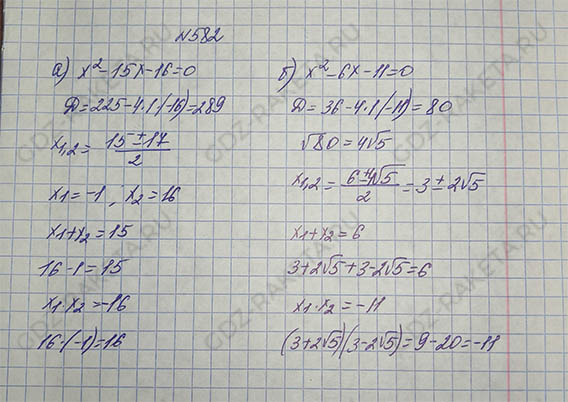 №582
а) x² - 15x - 16 = 0
D = 225 - 4·1·(-16) = 289
x1,2 = (15 ± 17)/2
x1 = -1, x2 = 16
x1 + x2 = 15
16 - 1 = 15
x1·x2 = -16
16·(-1) = 16
б) x² - 6x - 11 = 0
D = 36 - 4·1·(-11) = 80
√80 = 4√5
x1,2 = (6 ± 4√5)/2 = 3 ± 2√5
x1 + x2 = 6
3 + 2√5 + 3 - 2√5 = 6
x1·x2 = -11
(3 + 2√5)(3 - 2√5) = 9 - 20 = -11
GDZ-RAKETA.RU